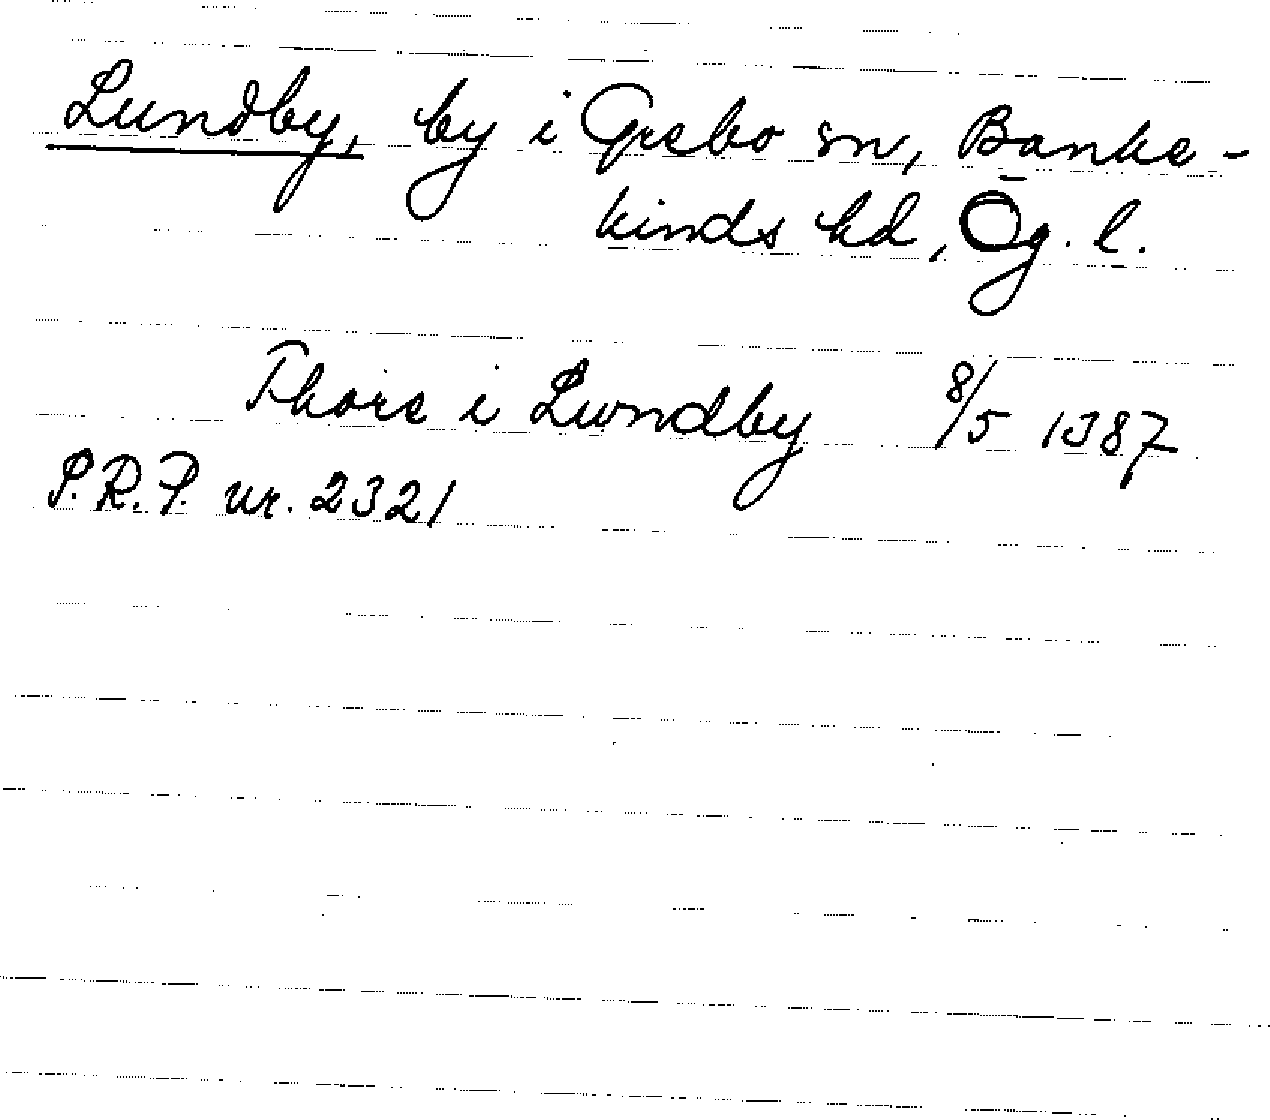 Lundby, by i Grebo sn, Banke-
kinds hd, Ög. l.
Thore i Lwndby 8/5 1387
S.R.P. nr. 2321